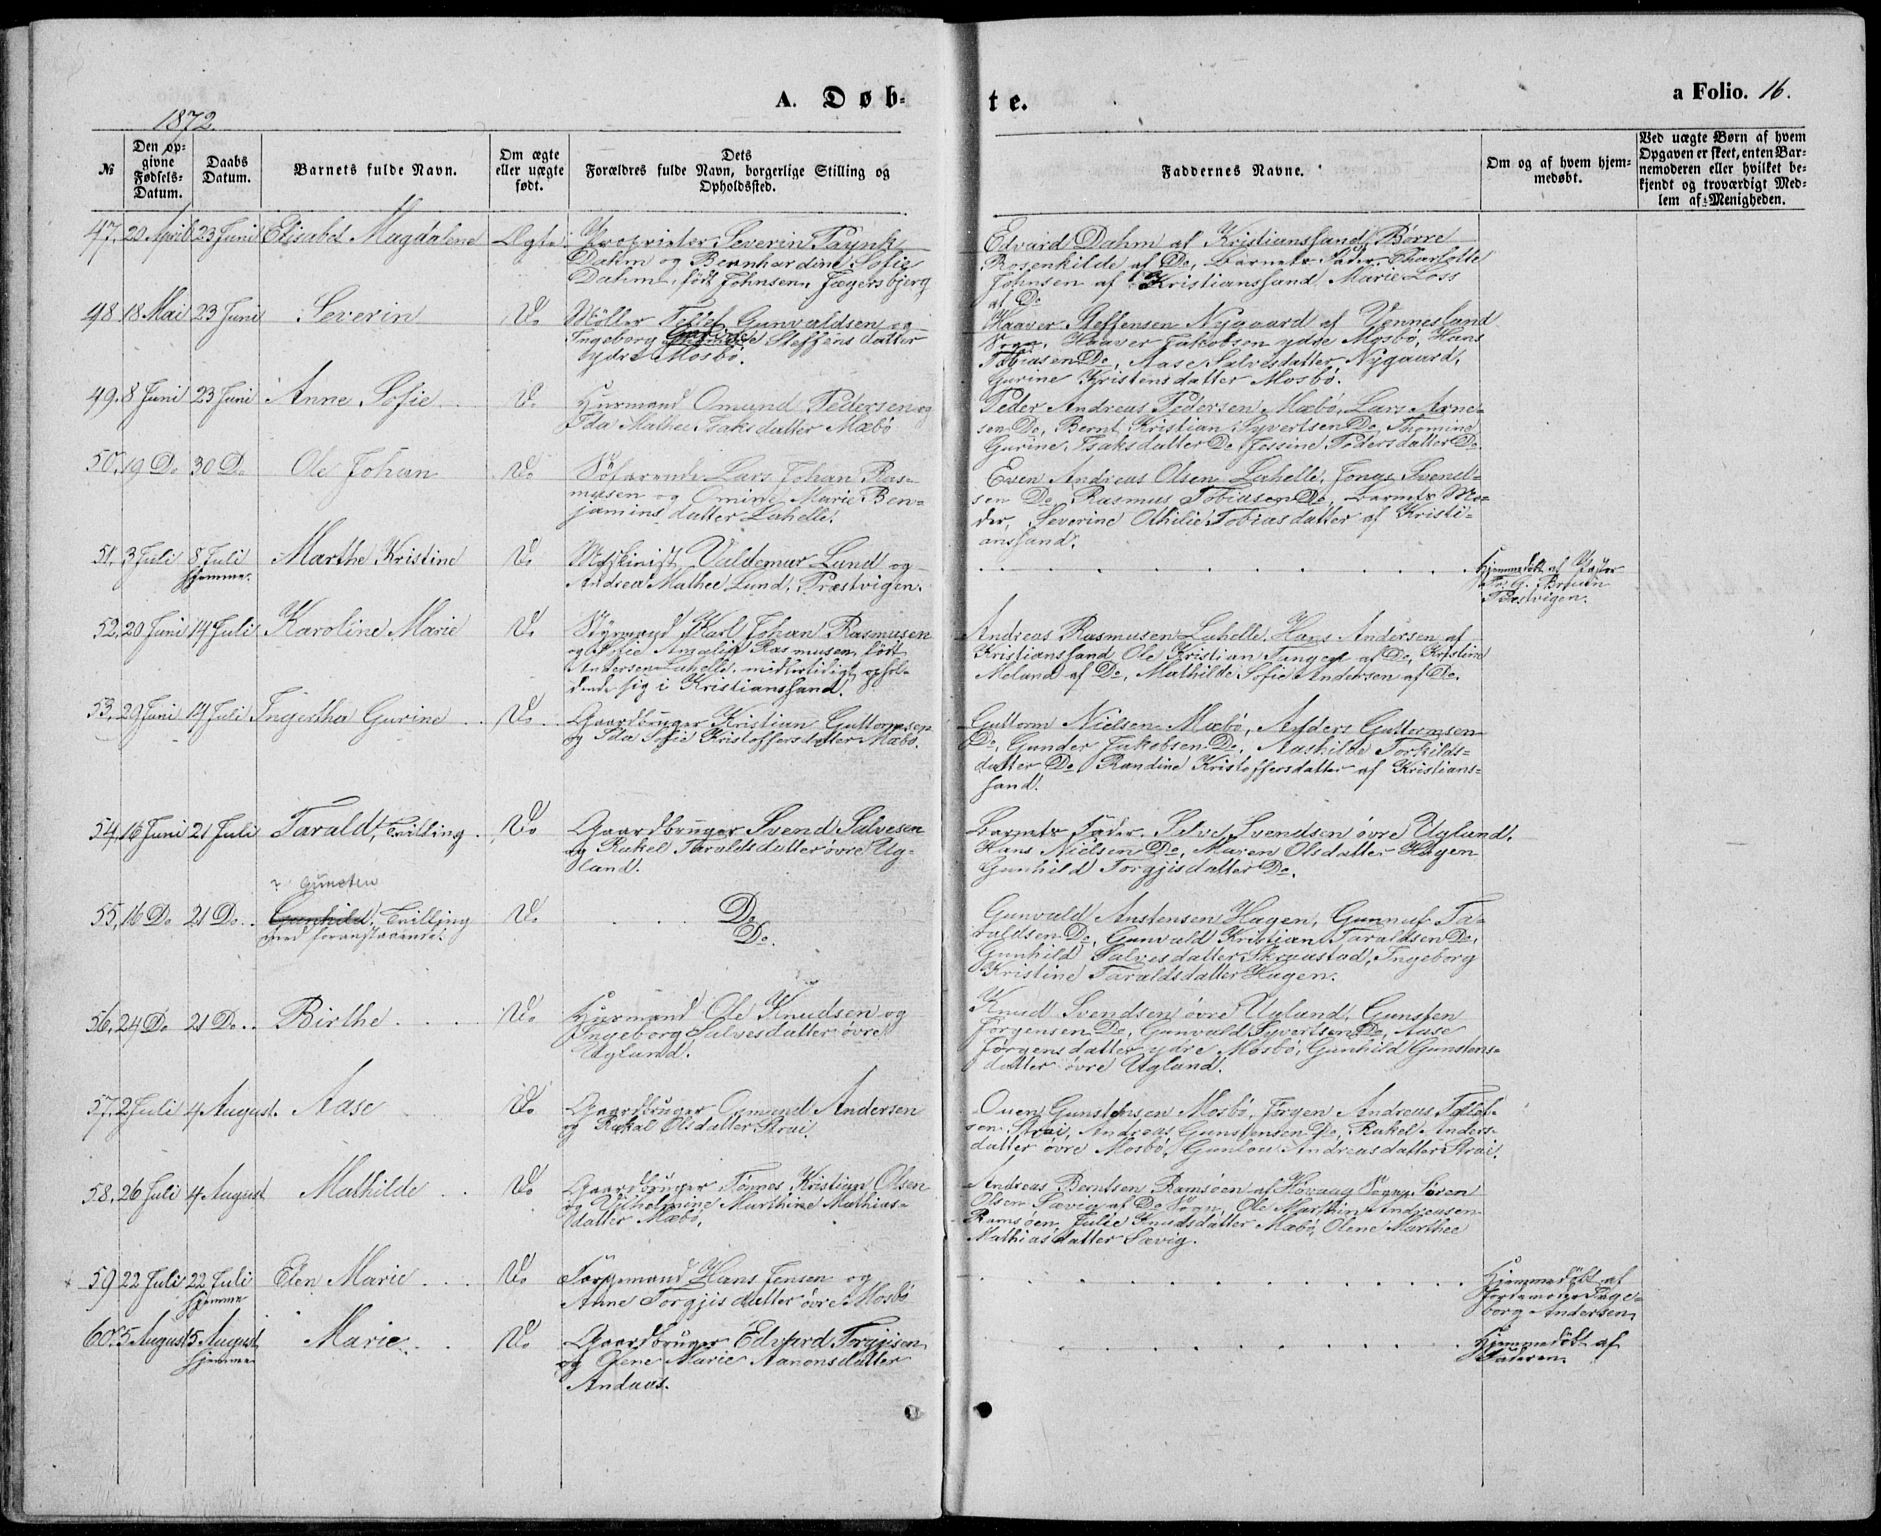 A. Døb-
te.
a Folio. 16.
1872.
№
Den op-
givne
Fødsels-
Datum.
Daabs
Datum.
Barnets fulde Navn.
Om ægte
eller uægte
født.
Dets
Forældres fulde Navn, borgerlige Stilling og
Opholdssted.
Faddernes Navne.
Om og af hvem hjem-
medøbt.
Ved uægte Børn af hvem
Opgaven er skeet, enten Bar-
nemoderen eller hvilket be-
kjendt og troværdigt Med-
lem af Menigheden.
47. 20 April 23 Juni Elisabet Magdalene Ægte
Proprietær Severin Paynk
Dahm og Bernhardine Sofie
Dahm, født Johnsen, Jægersbjerg
Edvard Dahm af Kristianssand, Børre
Rosenkilde af Do, Barnets Fader, Charlotte
Johnsen af Kristianssand, Marie Loss
af Do
48 18 Mai 23 Juni Severin Do
Møller Tellef Gunvaldsen og
Ingeborg Steffensdatter
ydre Mosbø.
Haaver Steffensen Nygaard af Vennesland
Sogn, Haaver Jakobsen ydre Mosbø, Hans
Tobiasen Do, Aase Salvesdatter Nygaard,
Gurine Kristensdatter Mosbø.
49. 8 Juni 23 Juni Anne Sofie Do
Husmand Omund Pedersen og
Ida Mathea Isaksdatter Mæbø
Peder Andreas Pedersen Mæbø, Lars Arne-
sen Do, Bernt Kristian Syvertsen Do, Thomine
Gurine Isaksdatter Do, Jessine Pedersdatter Do.
50. 19 Do 30 Do Ole Johan Do
Søfarende Lars Johan Ras-
musen og Omine Marie Ben-
jaminsdatter Lahelle.
Even Andreas Olsen Lahelle, Jonas Svend-
sen Do, Rasmus Tobiasen Do, Barnets Mo-
der, Severine Othilie Tobiasdatter af Kristi-
anssand.
51. 3 Juli 8 Juli Marthe Kristine Do
hjemme.
Maskinist Valdemar Lund og
Andrea Mathea Lund, Præstvigen.
Hjemmedøbt af Pastor
Fr. G. Bruun
Præstvigen.
52. 20 Juni 14 Juli Karoline Marie Do
Styrmand Karl Johan Rasmusen
og Sofie Amalia Rasmusen, født
Andersen Lahelle, midlertidigt ophol-
dende sig i Kristianssand.
Andreas Rasmusen Lahelle, Hans Andersen af
Kristianssand, Ole Kristian Tangen af Do, Kristine
Meland af Do, Mathilde Sofie Andersen af Do.
53. 29 Juni 14 Juli Ingertha Gurine Do
Gaardbruger Kristian Guttormsen
og Ida Sofie Kristoffersdatter Mæbø.
Guttorm Nielsen Mæbø, Anders Guttormsen
Do, Gunder Jakobsen Do, Aashilde Torkilds-
datter Do, Randine Kristoffersdatter af Kristians-
sand.
54. 16 Juni 21 Juli Tarald, Tvilling. Do
Gaardbruger Svend Salvesen
og Rakel Taraldsdatter øvre Ug-
land.
Barnets Fader, Salve Svendsen øvre Ugland.
Hans Nielsen Do, Maren Olsdatter Hagen
Gunhild Torgjisdatter Do.
Gunsten
55. 16 Do 21 Do Gunhild, Tvilling Do
med foranstaaende.
Do
Do.
Gunvald Anstensen Hagen, Gunnuf Ta-
raldsen Do, Gunvald Kristian Taraldsen Do,
Gunhild Salvesdatter Skraastad, Ingeborg
Kristine Taraldsdatter Hagen.
56. 24 Do 21 Do Birthe Do
Husmand Ole Knudsen og
Ingeborg Salvesdatter øvre
Ugland.
Knud Svendsen øvre Ugland, Gunsten
Jørgensen Do, Gunvald Syvertsen Do, Aase
Jørgensdatter ydre Mosbø, Gunhild Gunstens-
datter øvre Ugland.
57. 2 Juli 4 August. Aase Do
Gaardbruger Osmund Andersen
og Rakel Olsdatter Strai.
Ouen Gunstensen Mosbø, Jørgen Andreas Tellef-
sen Strai, Andreas Gunstensen Do, Rakel Anders-
datter øvre Mosbø, Gunlou Andreasdatter Strai.
58. 26 Juli 4 August Mathilde Do
Gaardbruger Tønnes Kristian Olsen
og Vilhelmine Marthine Mathias-
datter Mæbø.
Andreas Berntsen Ramsøen af Høvaag Sogn, Søren
Olsen Sævig af Do Sogn, Ole Marthin Andreasen
Ramsøen, Julie Knudsdatter Mæbø, Olene Marthea
Mathiasdatter Sævig.
59 22 Juli 22 Juli Elen Marie Do
hjemme
Hans Jensen og
Anne Torgjisdatter øvre Mosbø
Hjemmedøbt af
Jordemoder Inge-
borg Andersen
60. 5 August 5 August Marie Do
hjemme
Gaardbruger Edvard Torgjisen
og Olene Marie Aanonsdatter
Andaas.
Hjemmedøbt af
Faderen.